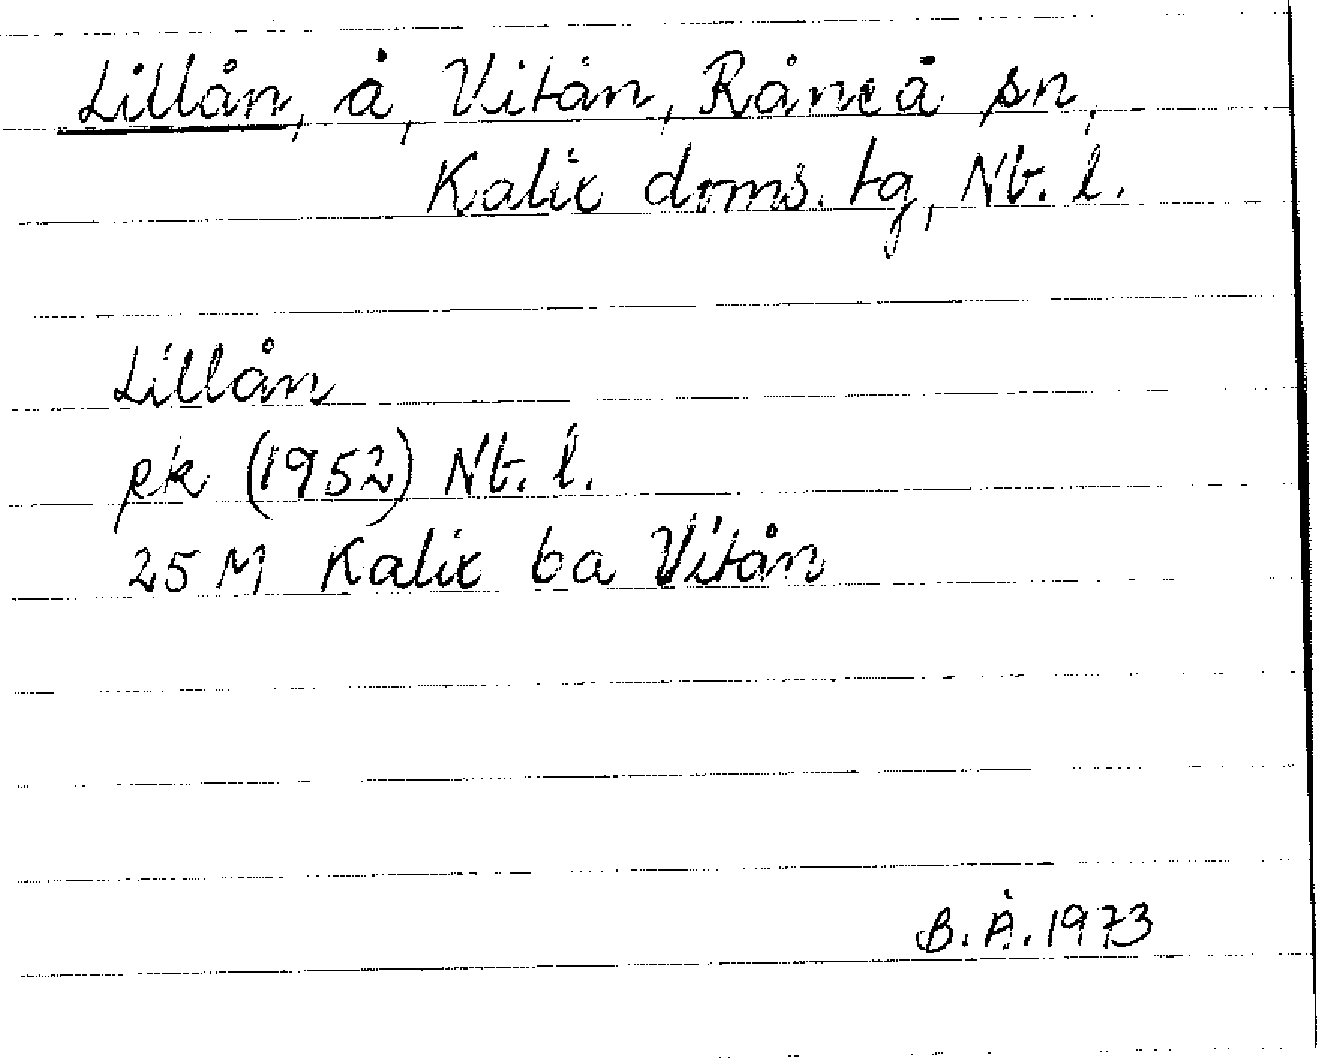 Lillån, å, Vitån, Råneå sn,
Kalix doms. tg, Nb. l.
Lillån
ek (1952) Nb. l.
25 M Kalix ba Vitån
B. Å. 1973